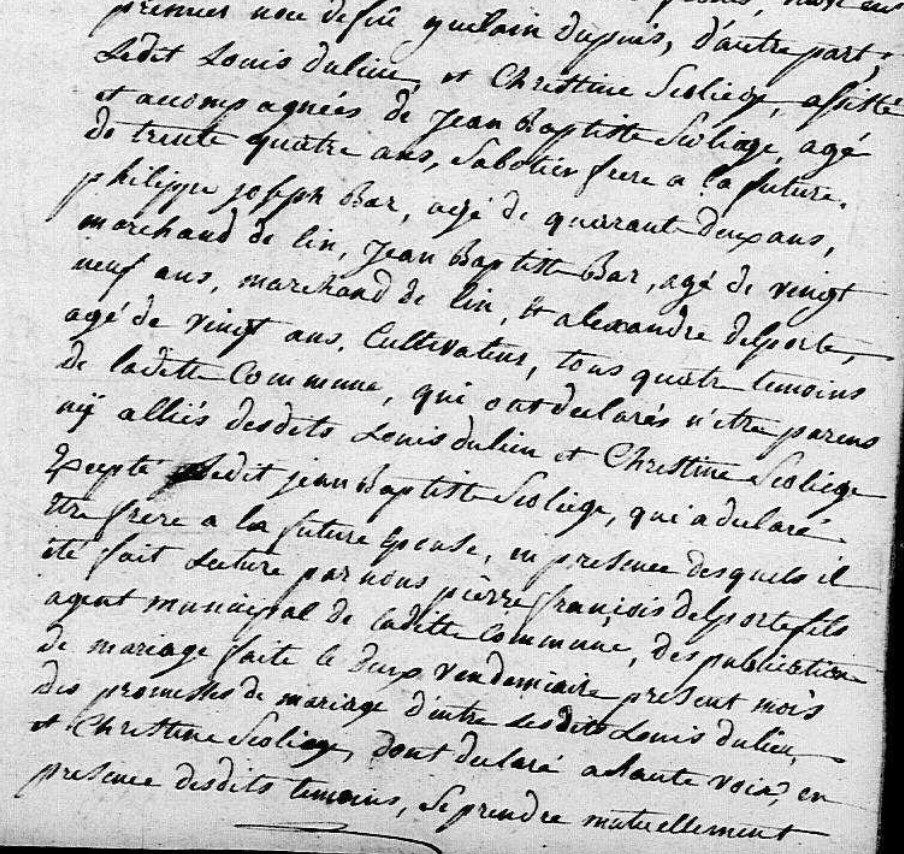 premier nou defû guilain Dupuis, d'autre part,
Ledit Louis Dulieu, et Christine Scoliege, assisté
et accompagnées de Jean Baptiste Scoliege, agé
de trente quatre ans, Sabotier frere a la future,
philippe joseph Bar, agé de quarante deux ans,
marchand de lin, Jean Baptiste Bar, agé de vingt
neuf ans, marchand de lin, et alexandre delporte,
agé de vingt ans, Cultivateur, tous quatre temoins
de ladette Commune, qui ont declarés n'etre parens
nÿ alliés desdits Louis dulieu et Christine Scoliege
Excepté Ledit jean Baptiste Scoliege, qui a declaré
etre frere a la future Epouse, en presence desquels il
eté fait Lecture par nous pierre françois delporte fils
agent municipal de ladette Commune, des publication
de mariage faite le deux vendemiaire present mois
des promesses de mariage d'entre Lesdits Louis dulieu,
et Christine Scoliege, dont declaré a haute voix, en
presence desdits temoins, Se prendre mutuellement